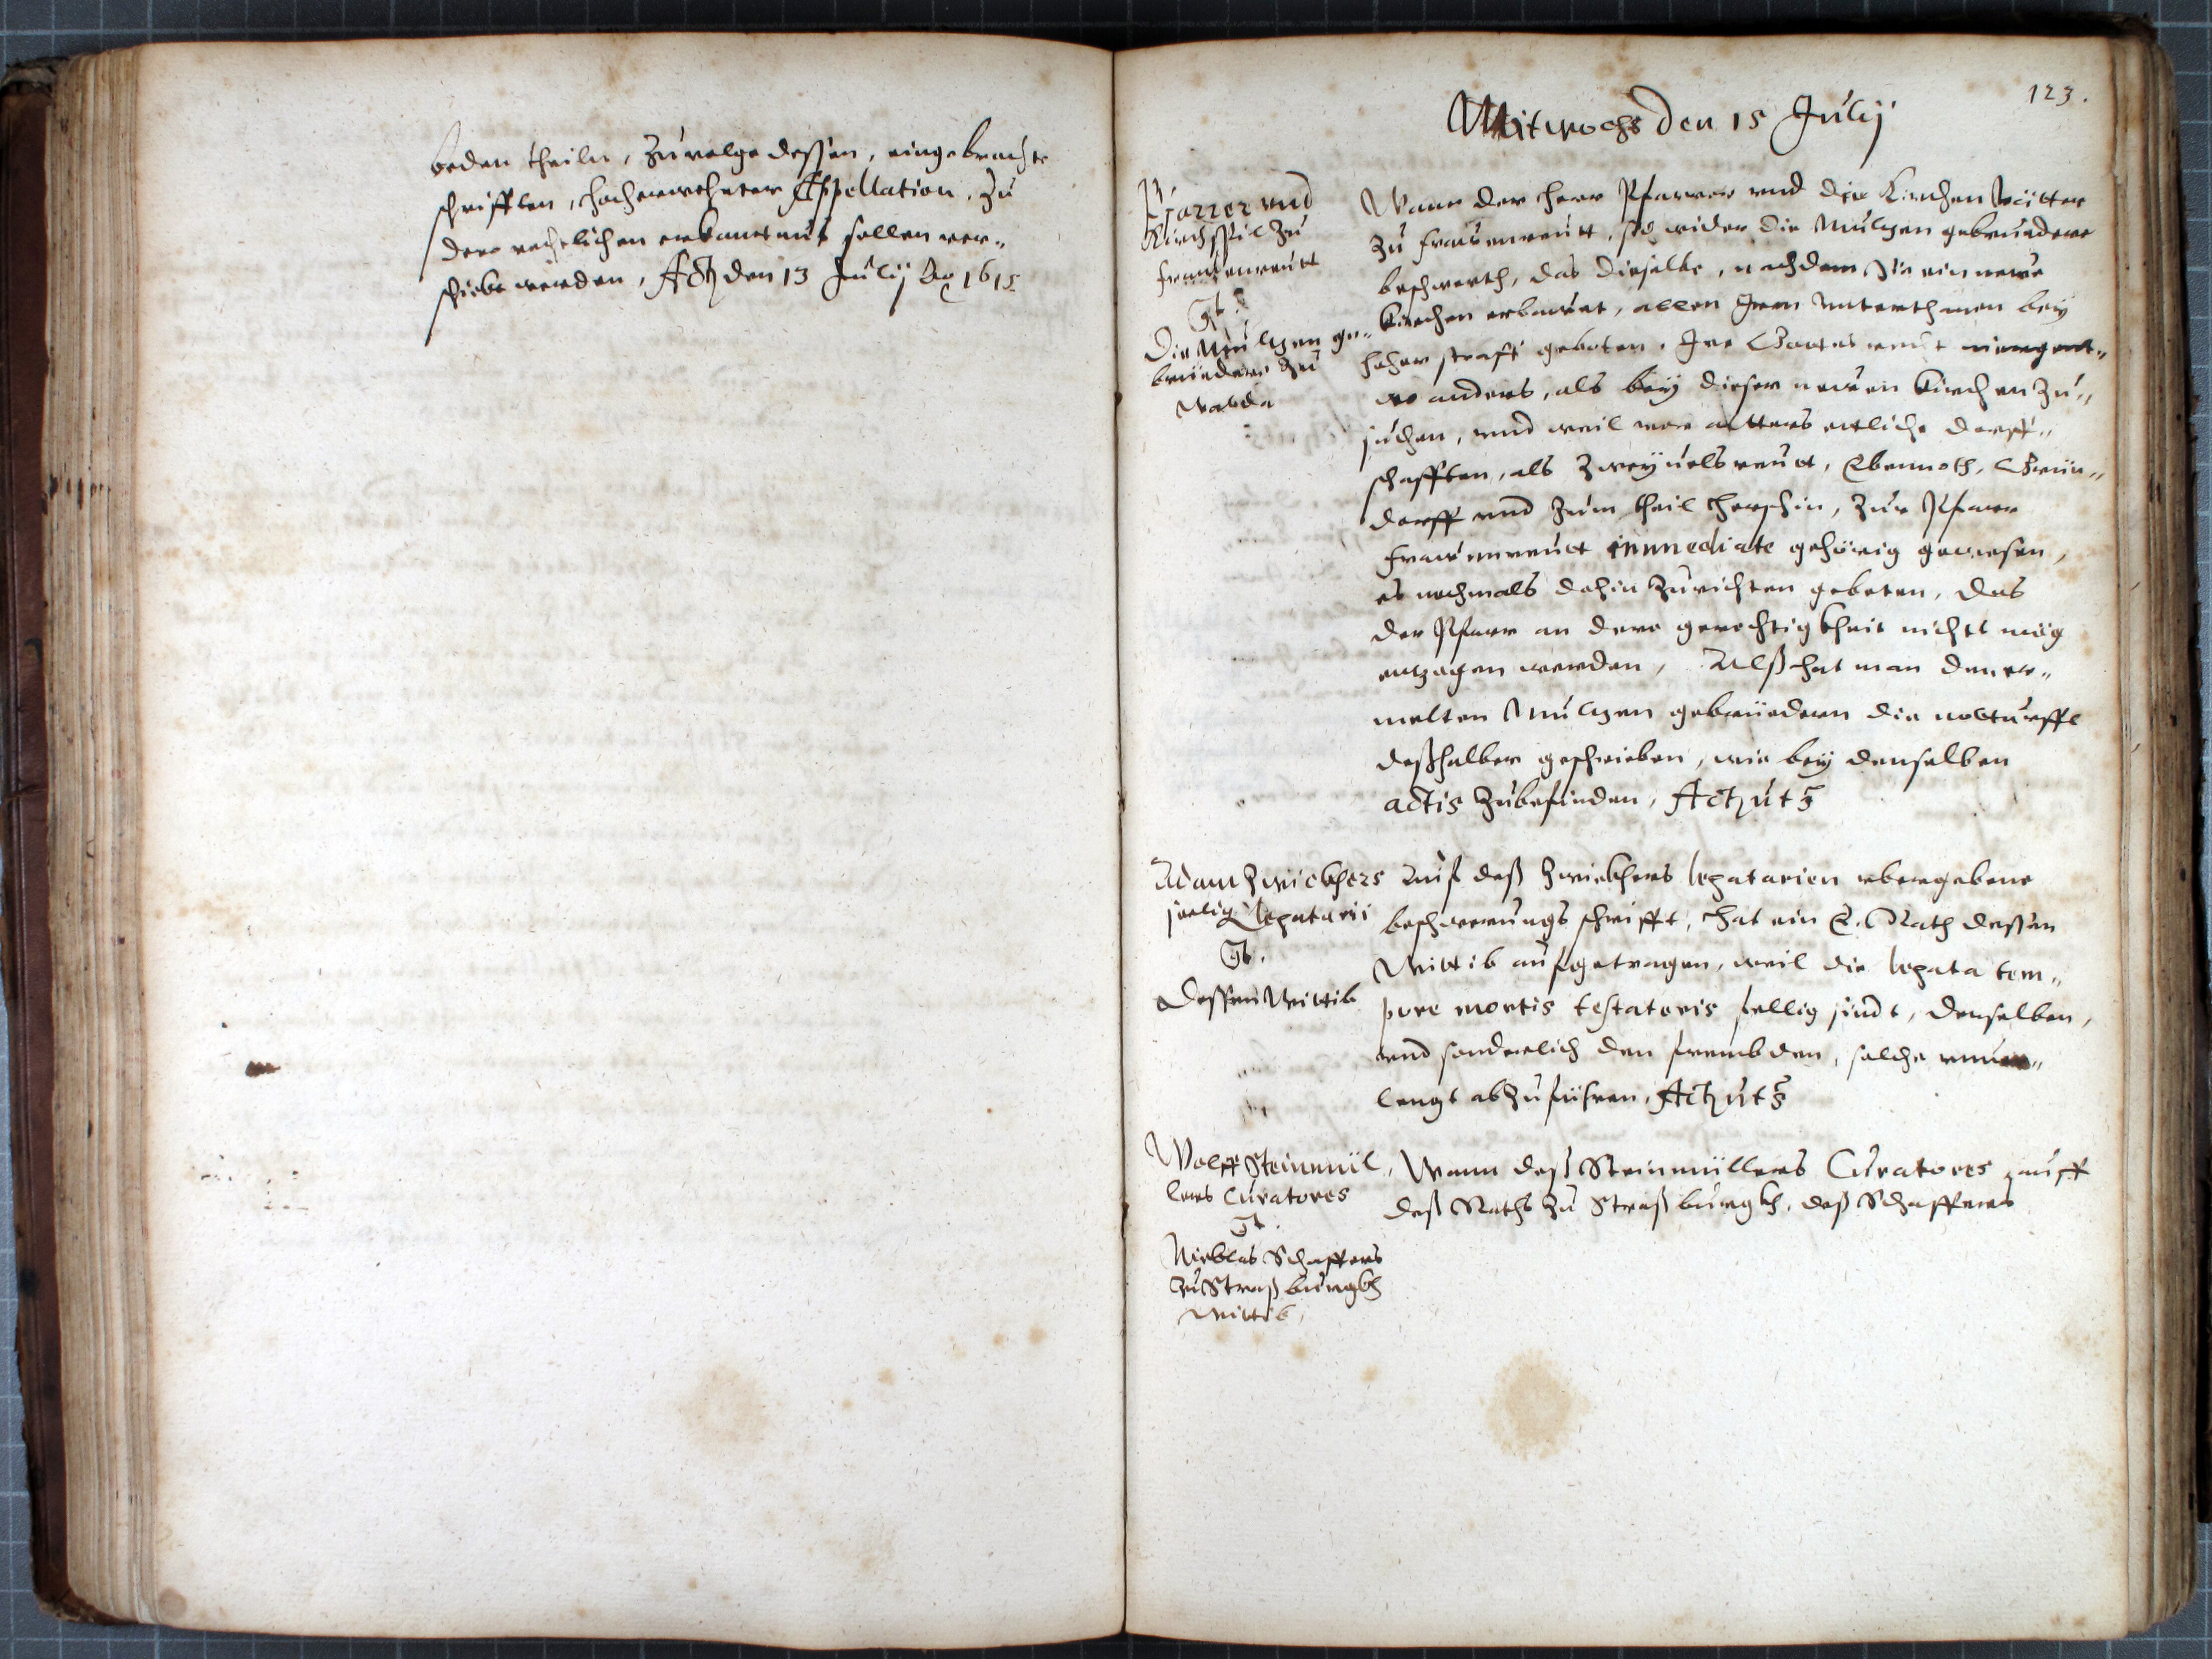 beden theiln, zuvolge dessen, eingebrachte
schrifften, hocherwehnter Appellation, zu
dero rechtlichen erkantnus sollen ver-
schickt werden, Act. den 13 Julij Ao 1615
123.
Mitwochs den 15 Julij
Pfarrer vnd
Kirchspil zu
frauenreutt
Ct.
Die Mulzen ge-
brüedere zu
Walda
Wann der herr Pfarrer vnd die Kirchen Vätter
zu frauenreutt, sich wider die Mulzen gebruedere
beschwerth, das dieselbe, nachdem Sie ein newe
Kirchen erbawet, allen Iren Vnterthanen bey
hoher straff geboten, Ire Gottes niergent-
wo anders, als bey dieser newen Kirchen zu-
suchen, vnd weil vor alters etliche dorff-
schafften, als Zweÿuelsreutt, Ebennoth, Grün-
dorff vnd zum theil, zur Pfarr
frauenreutt immediate gehörig gewesen,
es nochmals dahin zurichten gebeten, das
der Pfarr an dero gerechtigkheit nichts mög
entzogen werden, Alß hat man den er-
melten Mulzen gebrüedern die notturfft
deßhalben geschrieben, wie bey denselben
actis zubefinden, Act. ut s
Adam Zwickhers
seelig Legatarii
Ct.
Dessen Wittib
Auf deß Zwickhers legatarien vbergebene
beschwerungs schrifft, hat ein E. Rath dessen
Wittib aufgetragen, weil die legata tem-
pore mortis testatoris fellig sindt, denselben,
vnd sonderlich den frembden, solche vnuer-
lengt abzufüehren, Act. ut s
Wolff Steinmül-
lers Curatores
Ct.
Nicklas Schaffers
zu Straßburgkh
Wittib,
Wann deß Steinmüllers Curatores, auff
deß Raths zu Straßburgkh, deß Schaffers